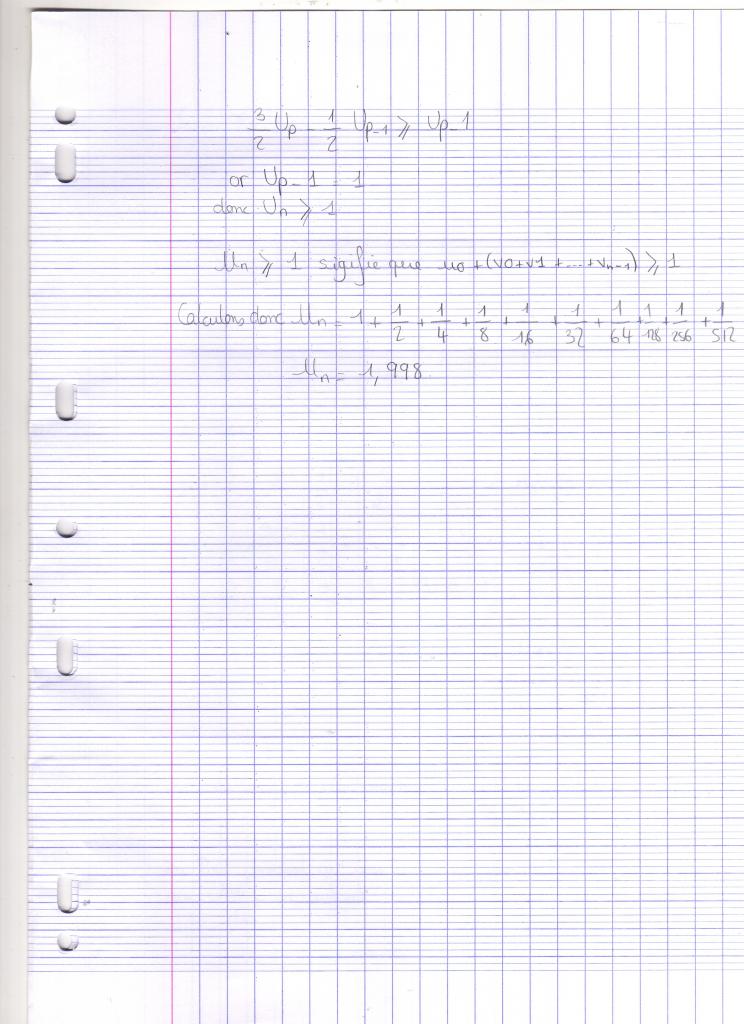 3/2 Up - 1/2 Up-1 ⩾ Up-1
or Up-1 = 1
donc Un ⩾ 1
Un ⩾ 1 sigifie que u0 + (v0 + v1 + .... + vn-1) ⩾ 1
Calculons donc Un = 1 + 1/2 + 1/4 + 1/8 + 1/16 + 1/32 + 1/64 + 1/128 + 1/256 + 1/512
Un = 1,998